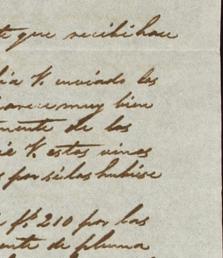 que recibi hace
V. enviado los
parece muy bien
mente de los
V. estos vinos
por si los hubiese
ps. 210 por las
de pluma